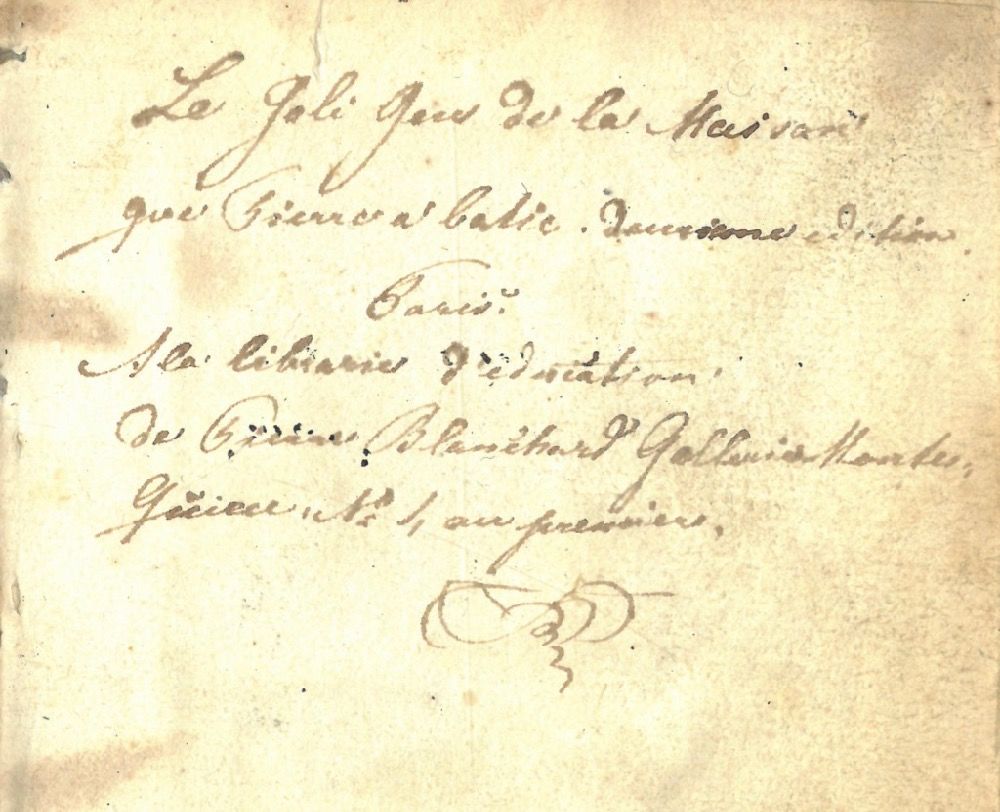 Le Joli Jeu de la Maison
que Pierre a batie. deuxieme edition
Paris.
A la librarie d'education
de Pierre Blanchard Gallerie Montes,
Quieu, N.º 1, au premier,